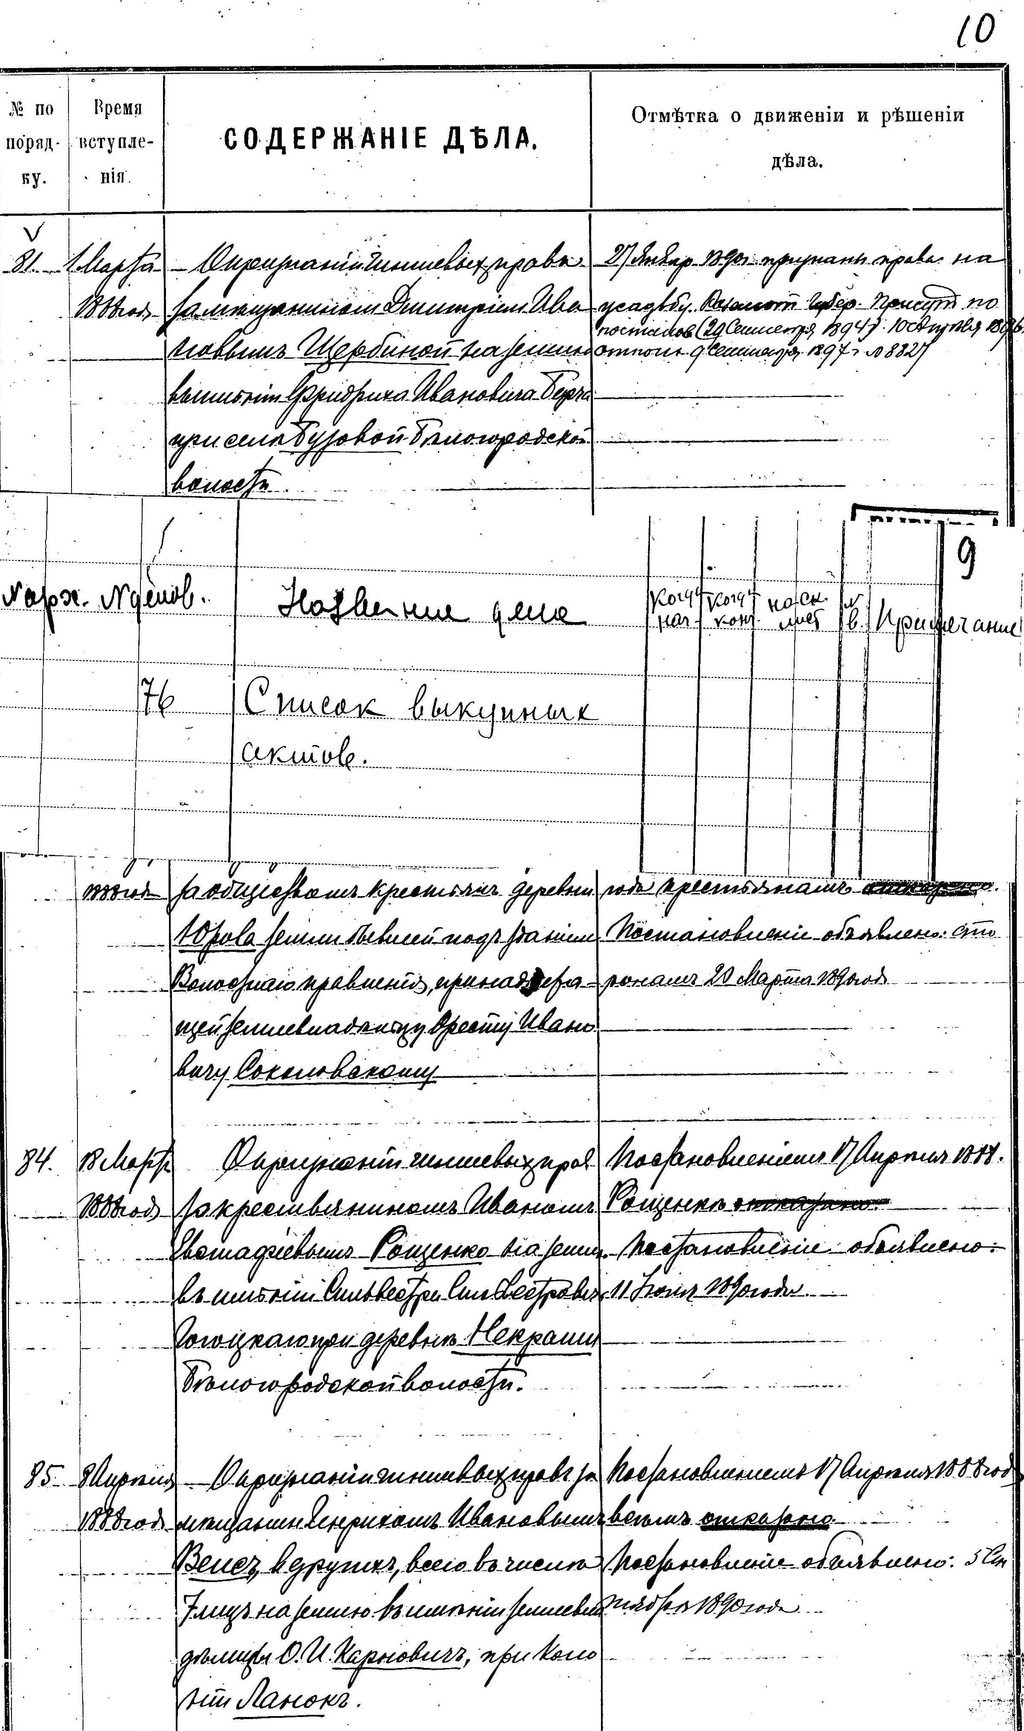 10
№ по поряд- ку.
Время вступле- нія.
СОДЕРЖАНІЕ ДѢЛА.
Отмѣтка о движеніи и рѣшеніи дѣла.
81.
1 Марта
1888 года
О признаніи чиншевыхъ правъ
за мѣщаниномъ Дмитріемъ Ива
новымъ Щербиной на землю
въ имѣніи Фридриха Ивановича Берга
при селѣ Бузовой Бѣлогородской
волости.
27 Январ 1890 г. признаны права на
усадьбу. Губер. Присут. по
постанов. (29 Сентября 1894 г. 10 Августа 1896
9 Сентября 1897 г. № 8827
9
N арх.
N описов.
Название дела
когда нач.
когда конч.
на ск. лист
Примечание
76
Список выкупных
актов.
1888 года
за обществомъ крестьянъ деревни
Юрова земли бывшей подъ зданіемъ
Волостнаго правленія, принадлежа-
щей землевладѣльцу Оресту Ивано
вичу Соколовскому
года крестьянамъ отказано.
Постановленіе объявлено: сто
ронамъ 20 Марта 1890 года
84.
18 Марта
1888 года
О признаніи чиншевыхъ правъ
за крестьяниномъ Иваномъ
Евстафіевымъ Рощенко на землю
въ имѣніи Сильвестра Сильвестровича
Гогоцкаго при деревнѣ Некраши
Бѣлогородской волости.
Постановленіемъ 17 Апрѣля 1888.
Рощенкѣ отказано.
Постановленіе объявлено:
11 Іюля 1890 года
85.
8 Апрѣля
1888 года
О признаніи чиншевыхъ правъ за
мѣщанин. Генрихомъ Ивановымъ
Вейсъ, и другихъ, всего въ числѣ
7 лицъ на землю въ имѣніи землевла
дѣлицы О. И. Карповичъ, при коло
ніи Ланокъ.
Постановленіемъ 17 Апрѣля 1888 года
всѣмъ отказано
Постановленіе объявлено: 5 Сен
тября 1890 года